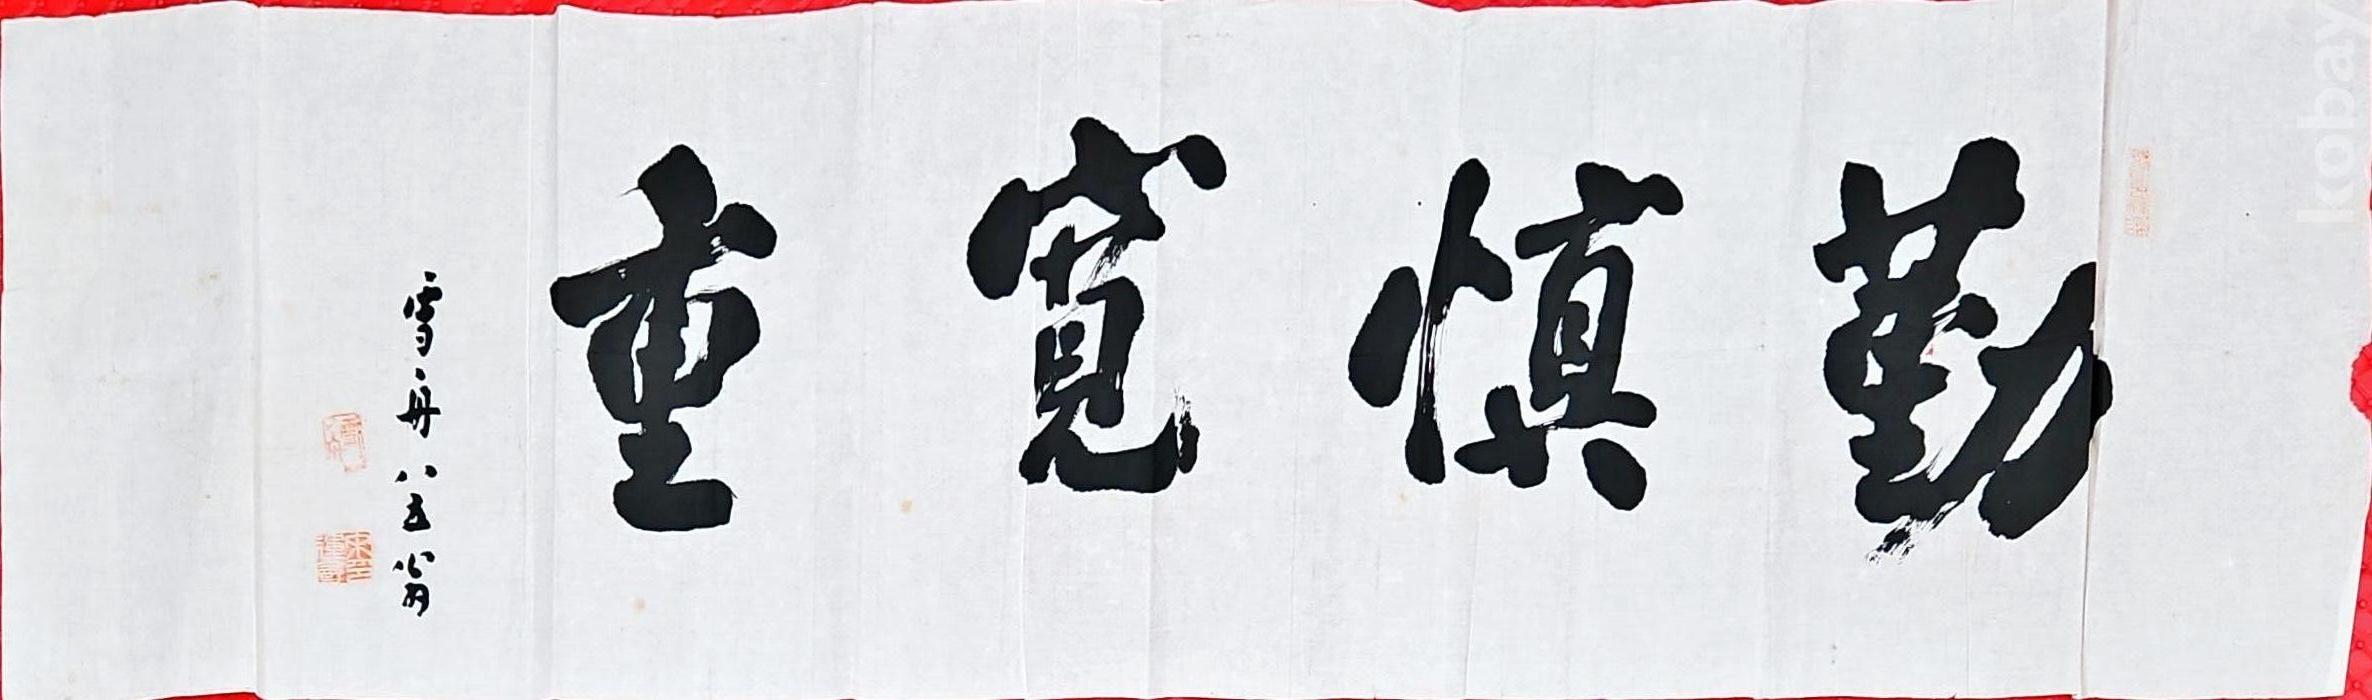 勤慎寬重
雪舟八五翁
kobay